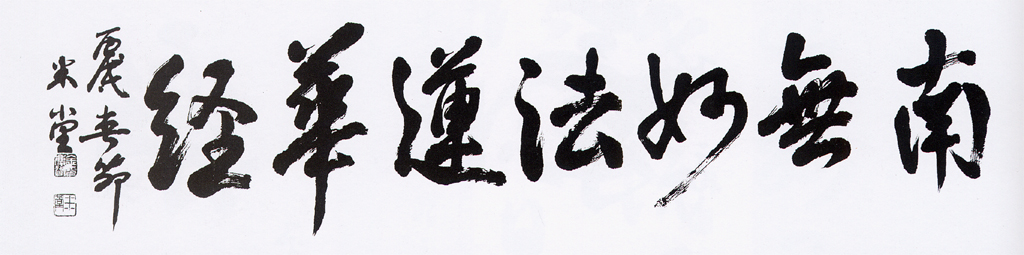 南無妙法蓮華經
春節
米堂